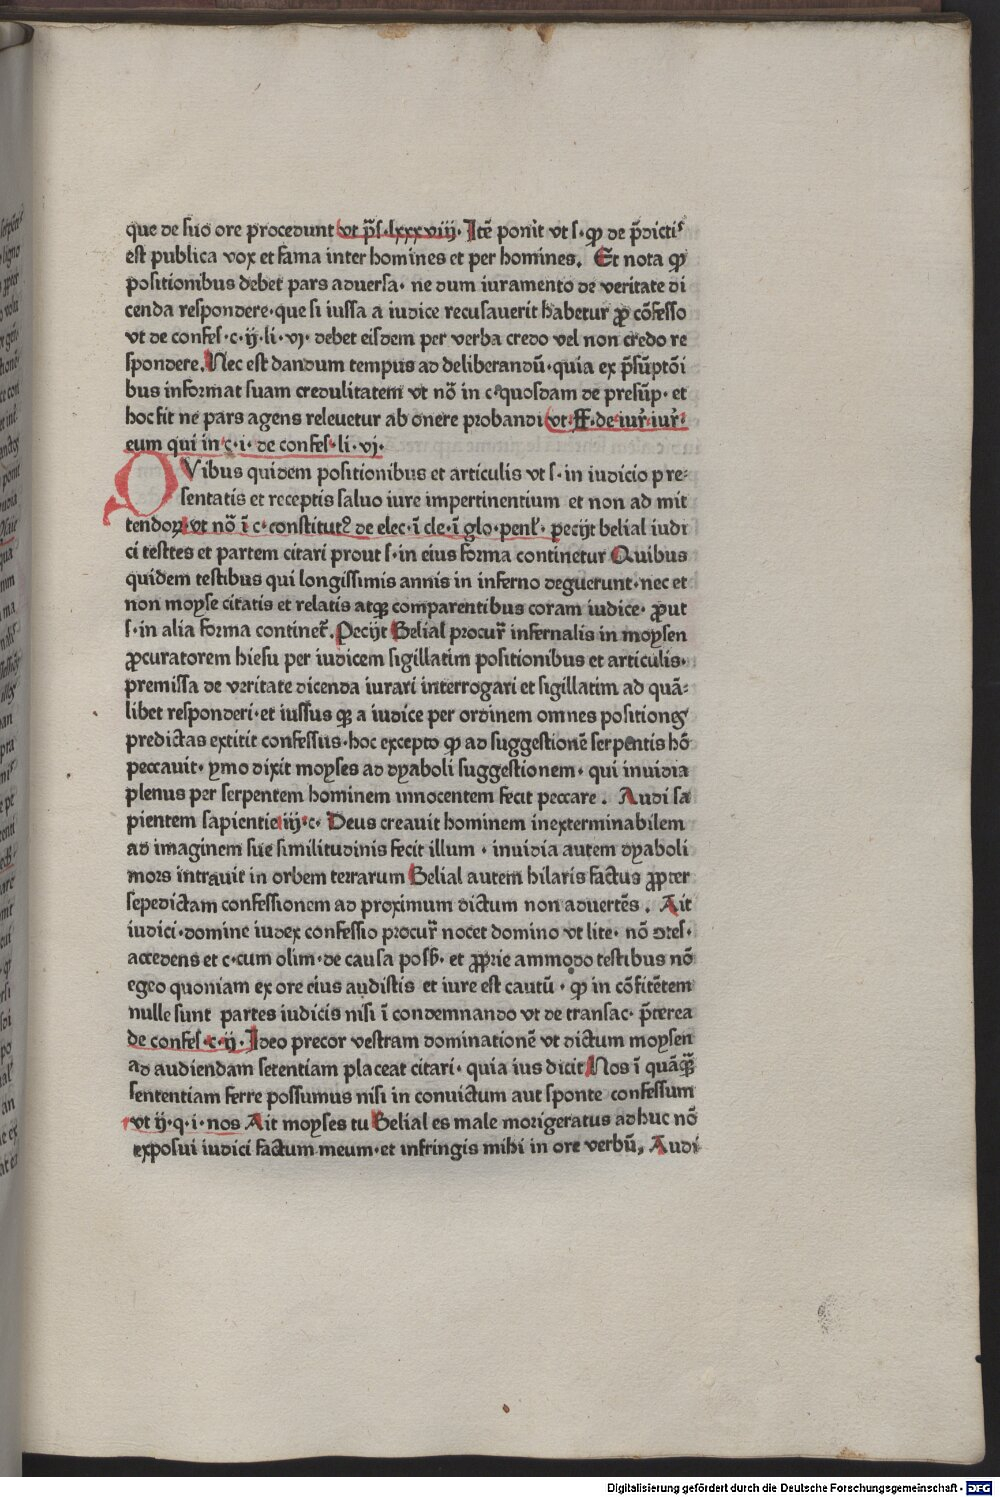 que de suo ore procedunt vt p̄s·lxxxviij· Itē ponit vt s· ꝙ de p̄dictis
est publica vox et fama inter homines et per homines. Et nota ꝙ
positionibus debet pars aduersa· ne dum iuramento de veritate di
cenda respondere·que si iussa a iudice recusauerit habetur ꝓ cōfesso
vt de confes·c·ij·li·vj· debet eisdem per verba credo vel non credo re
spondere. Nec est dandum tempus ad deliberandū·quia ex p̄sūptōi
bus informat suam credulitatem vt nō in c·quosdam de presūp· et
hoc fit ne pars agens releuetur ab onere probandi vt·ff·de·iur̄·iur̄·
eum qui in·c·i·de confes·li·vj·
QVibus quidem positionibus et articulis vt s·in iudicio pre⸗
sentatis et receptis saluo iure impertinentium et non ad mit
tendoꝝ vt nō ī c·constitutꝰ de elec·ī cle·ī glo·penl̄· pecijt belial iudi
ci testtes et partem citari prout s·in eius forma continetur Quibus
quidem testibus qui longissimis annis in inferno deguerunt·nec et
non moyse citatis et relatis atqꝫ comparentibus coram iudice· ꝓut
s·in alia forma continet᷑. Pecijt Belial procur̄ infernalis in moysen
ꝓcuratorem hiesu per iudicem sigillatim positionibus et articulis·
premissa de veritate dicenda iurari interrogari et sigillatim ad quā⸗
libet responderi·et iussus qꝫ a iudice per ordinem omnes positiones
predictas extitit confessus·hoc excepto ꝙ ad suggestionē serpentis hō
peccauit· ymo dixit moyses ad dyaboli suggestionem· qui inuidia
plenus per serpentem hominem innocentem fecit peccare. Audi sa
pientem sapientie iij·c· Deus creauit hominem inexterminabilem
ad imaginem sue similitudinis fecit illum · inuidia autem dyaboli
mors intrauit in orbem terrarum Belial autem hilaris factus ꝓpter
sepedictam confessionem ad proximum dictum non aduertēs. Ait
iudici·domine iudex confessio procur̄ nocet domino vt lite· nō ↄtes·
accedens et c·cum olim·de causa poss̄· et ꝓprie ammodo testibus nō
egeo quoniam ex ore eius audistis et iure est cautū· ꝙ in cōfitētem
nulle sunt partes iudicis nisi ī condemnando vt de transac· p̄terea
de confes·c·ij· Ideo precor vestram dominationē vt dictum moysen
ad audiendam setentiam placeat citari· quia ius dicit Nos ī quāqꝫ
sententiam ferre possumus nisi in conuictum aut sponte confessum
vt ij·q·i·nos Ait moyses tu Belial es male morigeratus adhuc nō
exposui iudici factum meum·et infringis mihi in ore verbū, Audi
Digitalisierung gefördert durch die Deutsche Forschungsgemeinschaft - DFG